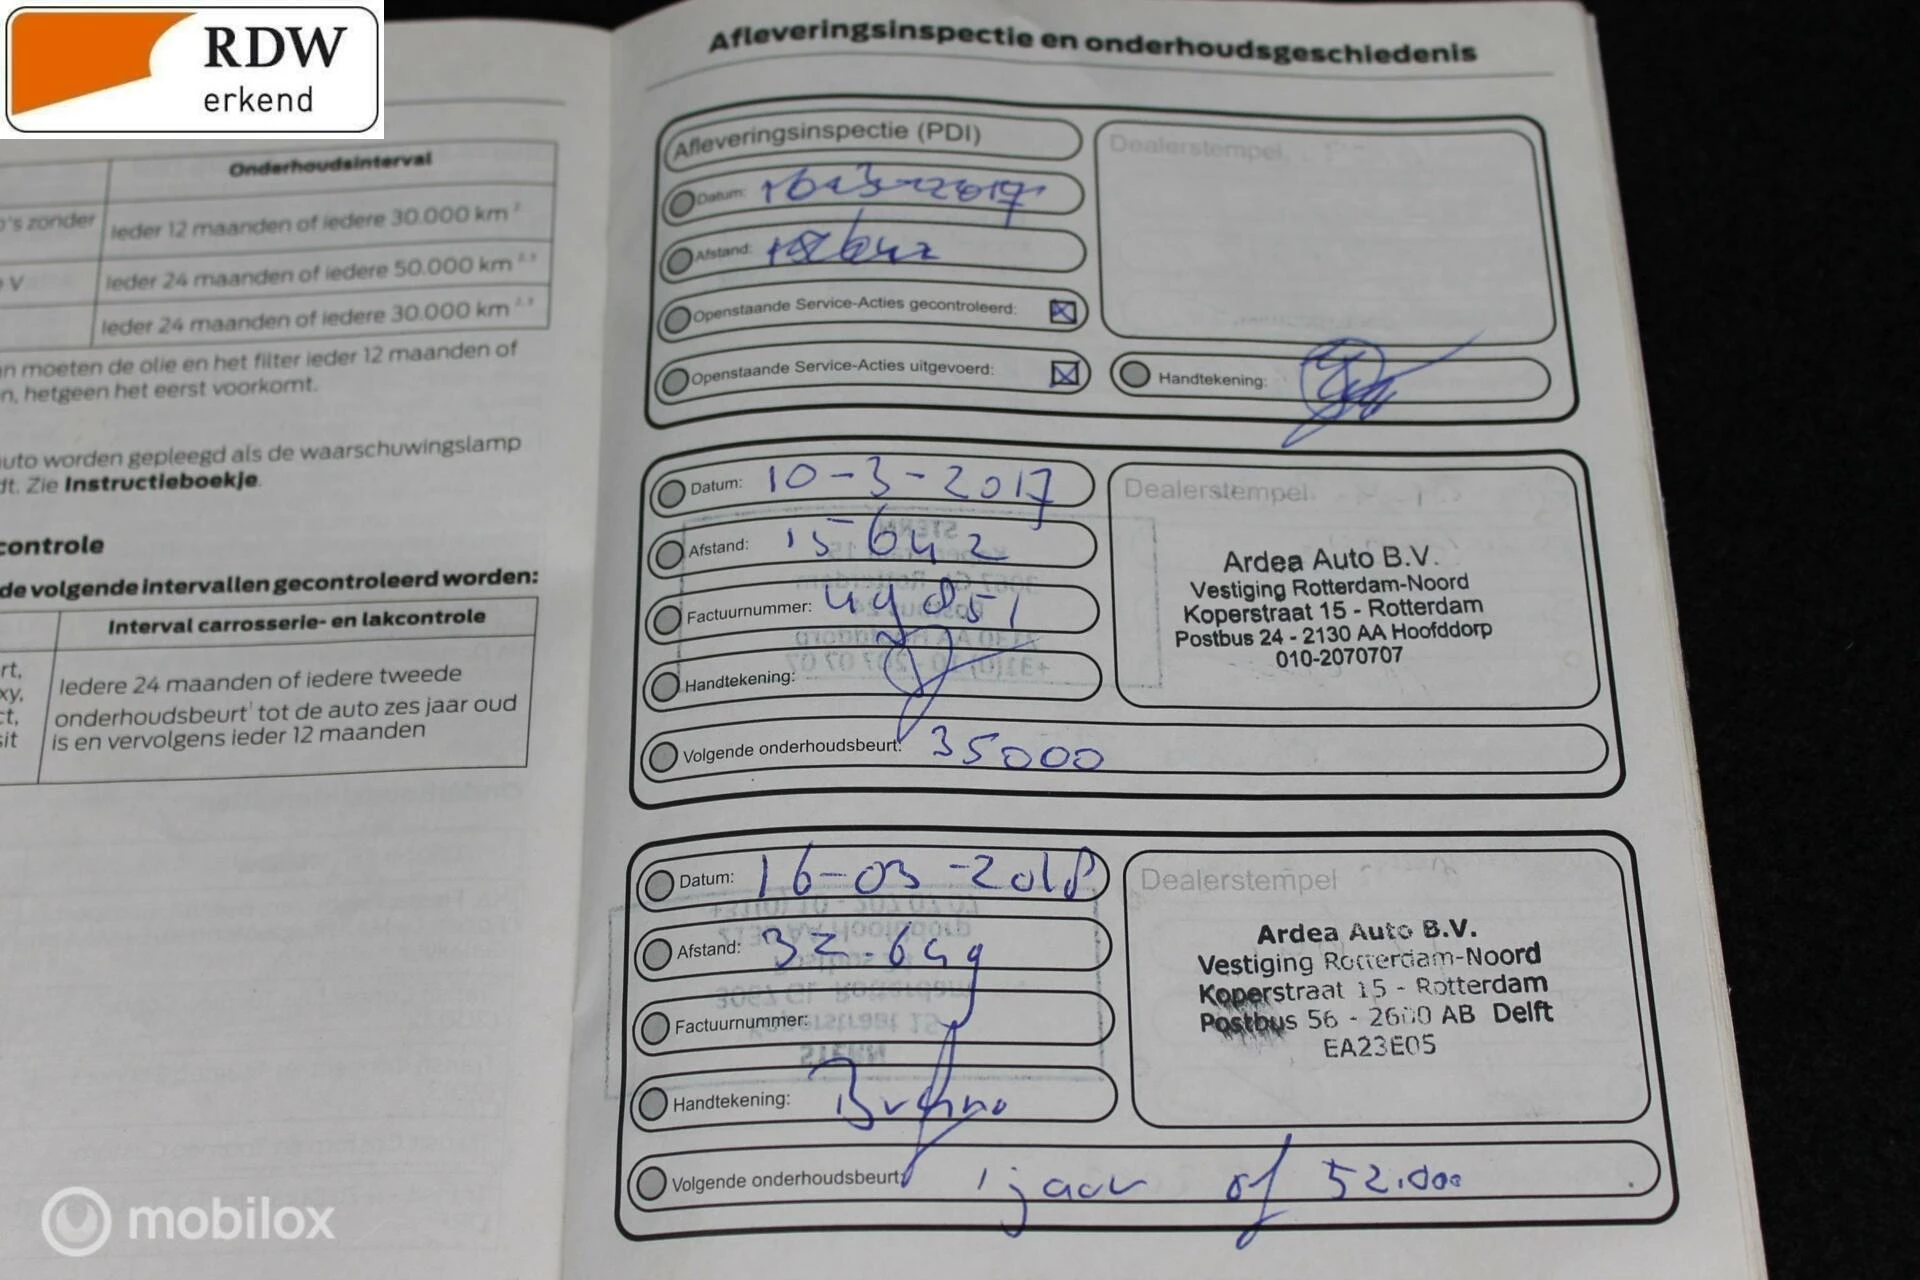 RDW
erkend
Onderhoudsinterval
o's zonder
Ieder 12 maanden of iedere 30.000 km ²
V
Ieder 24 maanden of iedere 50.000 km ²·³
Ieder 24 maanden of iedere 30.000 km ²·³
n moeten de olie en het filter ieder 12 maanden of
n, hetgeen het eerst voorkomt.
uto worden gepleegd als de waarschuwingslamp
dt. Zie Instructieboekje.
controle
de volgende intervallen gecontroleerd worden:
Interval carrosserie- en lakcontrole
rt,
xy,
ct,
sit
Iedere 24 maanden of iedere tweede
onderhoudsbeurt¹ tot de auto zes jaar oud
is en vervolgens ieder 12 maanden
Afleveringsinspectie en onderhoudsgeschiedenis
Afleveringsinspectie (PDI)
Dealerstempel
Datum:
Afstand:
Openstaande Service-Acties gecontroleerd:
Openstaande Service-Acties uitgevoerd:
Handtekening:
Datum: 10-3-2017
Afstand: 15642
Factuurnummer:
Handtekening:
Volgende onderhoudsbeurt: 35000
Dealerstempel
Ardea Auto B.V.
Vestiging Rotterdam-Noord
Koperstraat 15 - Rotterdam
Postbus 24 - 2130 AA Hoofddorp
010-2070707
Datum: 16-03-2018
Afstand:
Factuurnummer:
Handtekening:
Volgende onderhoudsbeurt: 1 jaar of 52.000
Dealerstempel
Ardea Auto B.V.
Vestiging Rotterdam-Noord
Koperstraat 15 - Rotterdam
Postbus 56 - 2600 AB Delft
EA23E05
mobilox